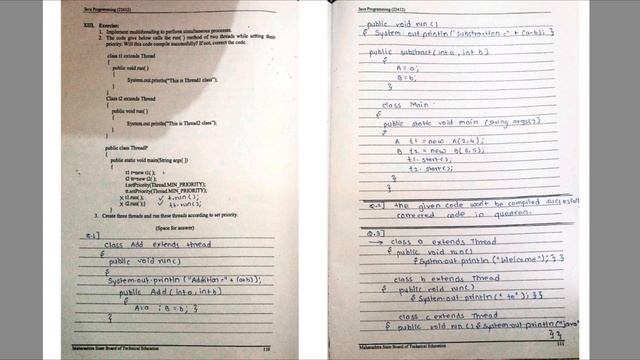 Java Programming (22412)
XIII. Exercise:
1. Implement multithreading to perform simultaneous processes.
2. The code give below calls the run( ) method of two threads while setting their
priority. Will this code compile successfully? If not, correct the code.
class t1 extends Thread
{
public void run( )
{
System.out.println("This is Thread1 class");
}
}
Class t2 extends Thread
{
public void run( )
{
System.out.println("This is Thread2 class");
}
}
public class ThreadP
{
public static void main(String args[ ])
{
t1 t=new t1( );
t2 tt=new t2( );
t.setPriority(Thread.MIN_PRIORITY);
tt.setPriority(Thread.MIN_PRIORITY);
X t1.run( ); ✓ t.run();
X t2.run( ) ✓ tt.run();
}
}
3. Create three threads and run these threads according to set priority.
(Space for answer)
Q.1]
class Add extends thread
{
public void run()
{
System.out.println ("Addition=" + (a+b));
public Add (int a, int b)
{
A=a ; B=b; }
}
Maharashtra State Board of Technical Education 110
Java Programming (22412)
public void run()
{ System.out.println ("Substraction=" + (a-b); }
public substract (int a, int b)
{
A = a;
B = b;
}
class Main
{
public static void main (string args[])
{
A t1 = new A(2,4);
B t2 = new B(6,5);
t1.start();
t2.start();
}
}
Q.2] The given code won't be compiled successfull
corrected code in question.
Q.3]
→ class a extends Thread
{ public void run()
{ System.out.println ("Welcome"); } }
class b extends Thread
{ public void run()
{ System.out.println (" to"); } }
class c extends Thread
{ public void run() { System.out.println ("java"
} }
Maharashtra State Board of Technical Education 111